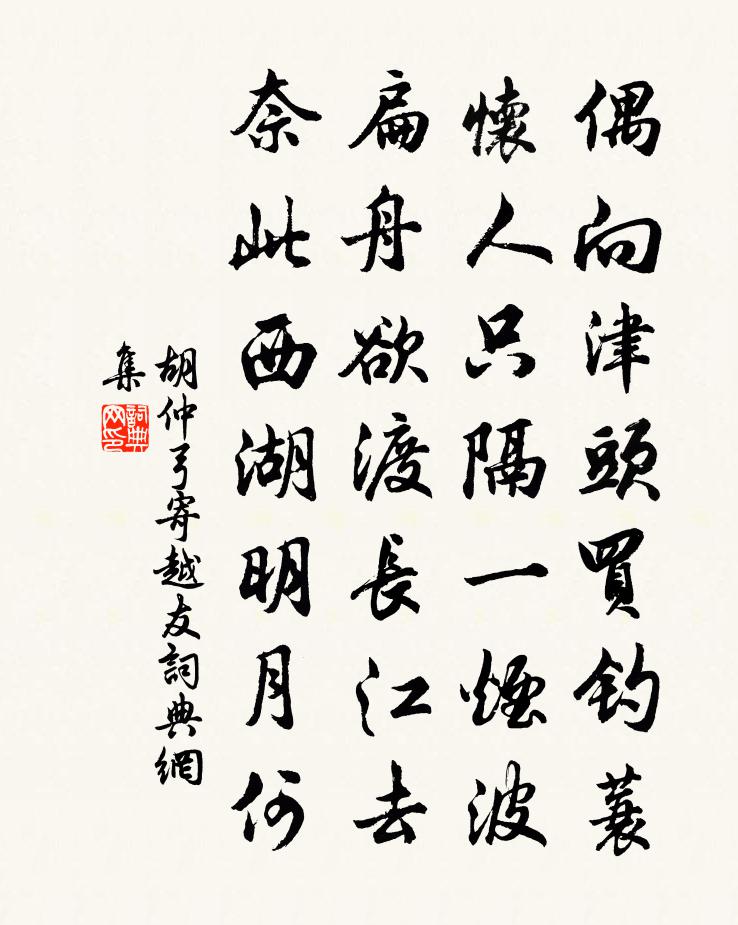 偶向津頭買釣蓑
懷人只隔一煙波
扁舟欲渡長江去
奈此西湖明月何
胡仲弓寄越友詞典網
集
詞典
网印